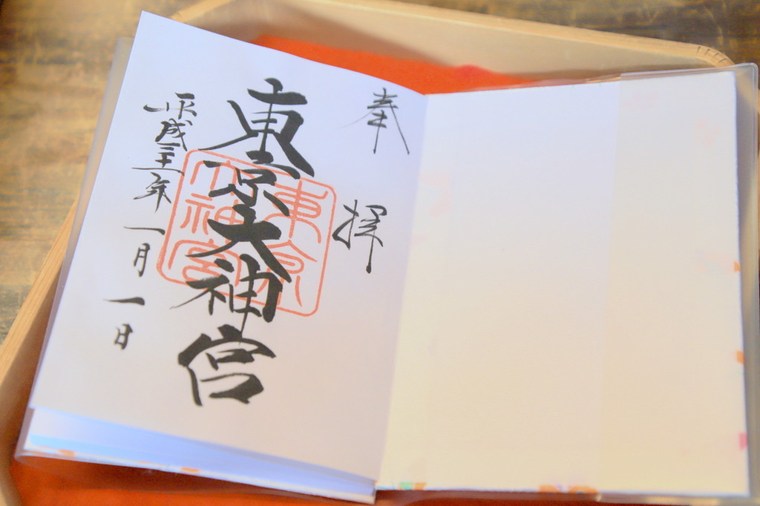 奉拝
東京大神宮
東京
大神宮
平成三十一年一月一日